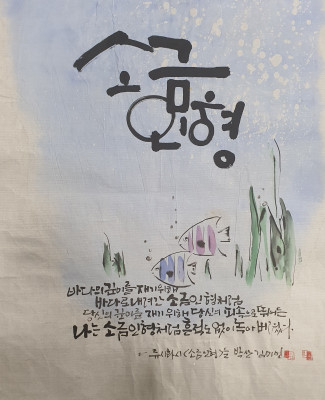 소금
인형
바다의 깊이를 재기 위해
바다로 내려간 소금인형처럼
당신의 깊이를 재기 위해 당신의 피속으로 뛰어든
나는 소금인형처럼 흔적도 없이 녹아 버렸네.
류시화 시 <소금인형>을